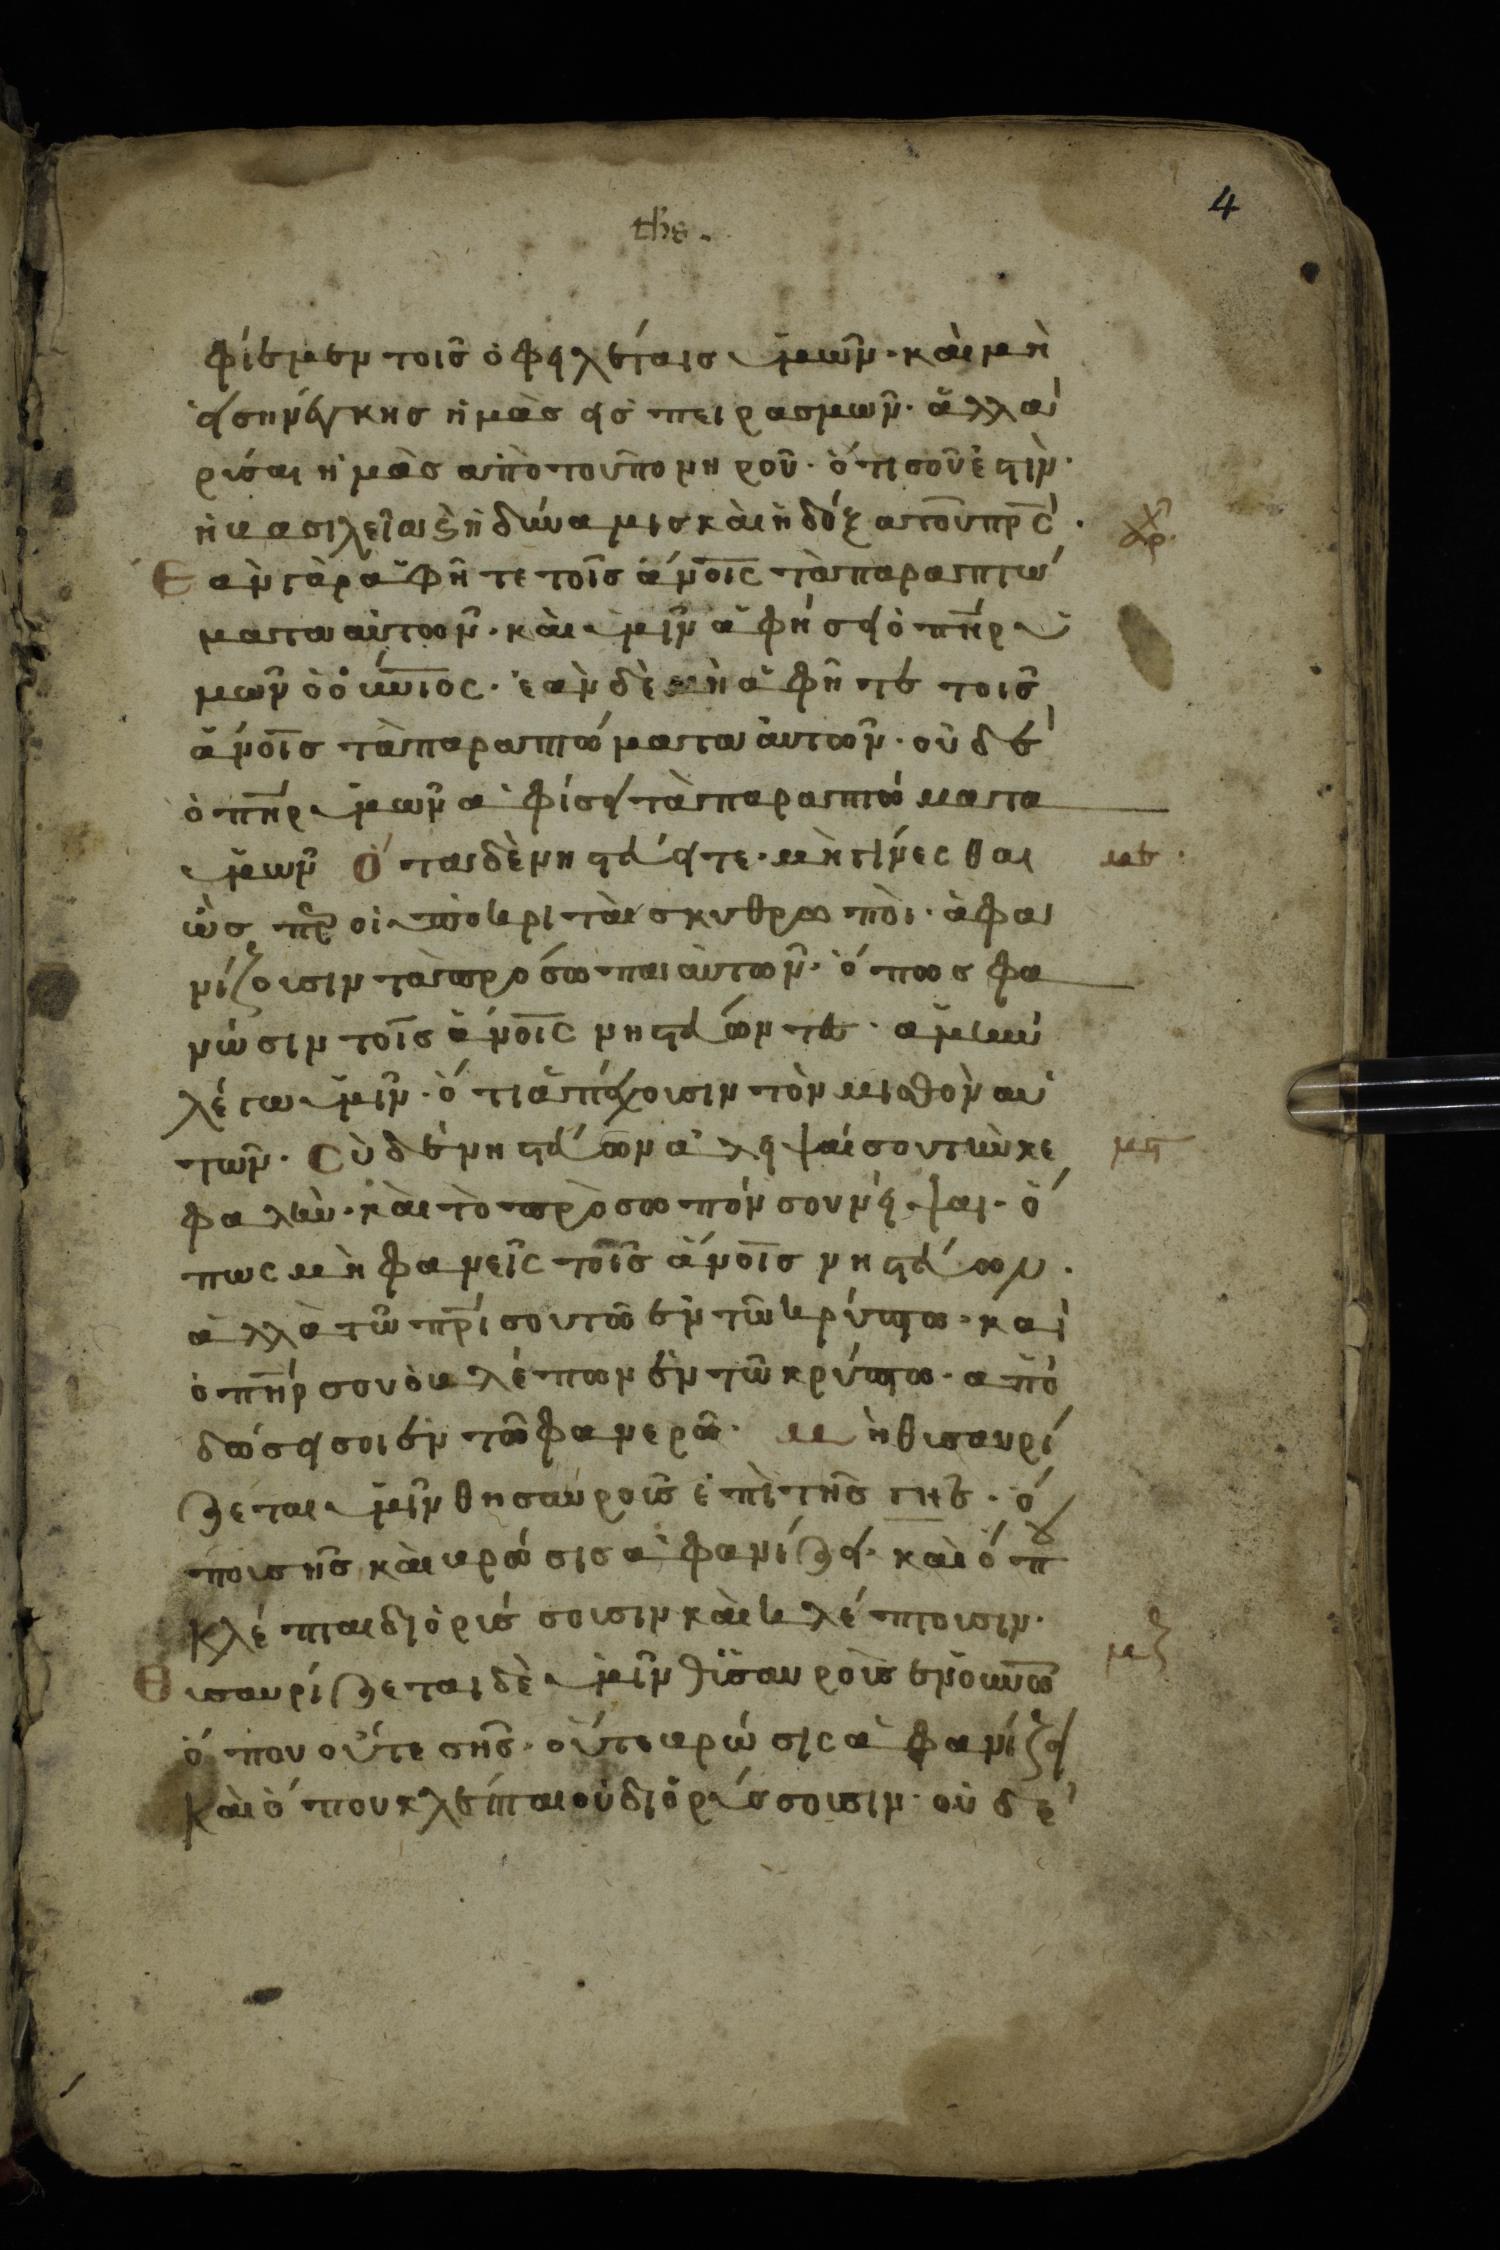 4
ths.
φίεμεν τοῖς ὀφηλέταις ὑμῶν· καὶ μὴ
εἰσηνέγκης ἡμὰς εἰς πειρασμῶν· ἀλλα
ρύσαι ἡμὰς απὸ τοῦ πονηροῦ· ὅτι σοῦ ἐστὶν·
ἡ βασιλεῖα ϗ ἡ δύναμις καὶ ἡ δόξα τοῦ πρς·
Εαν γὰρ ἀφῆτε τοῖς ἀνοις τὰ παραπτώ
ματα αὐτων· καὶ ὑμῖν ἀφήσει ὁ πηρ ὑ
μῶν ὁ οὐνιος· ἐὰν δὲ μὴ ἀφῆτε τοις
ἀνοις τὰ παραπτώματα αὐτῶν· οὐδὲ
ὁ πηρ ὑμῶν ἀφίσει τὰ παραπτώματα
ὑμῶν Ὅται δὲ νηστεύειτε· μὴ γίνεσθαι
μϛ·
ὡς περ οἱ ὑποκριταὶ σκυθρωποὶ· ἀφα
νίζουσιν τὰ προσωπα αὐτων· ὅπως φα
νώσιν τοῖς ἀνοις νηστεύωντε· ἀμιν
λέγω ὑμῖν· ὅτι ἀπέχουσιν τὸν μισθὸν αὐ
τῶν· Σὺ δὲ νηστεύων ἀληψαί σου τὴν κε
φαλήν· καὶ τὸ πρόσωπόν σου νήψαι· ὅ
πως μὴ φανεῖς τοῖς ἀνοις νηστεύων·
ἀλλὰ τῶ πρί σου τῶ ἐν τῶ κρύπτω· καὶ
ὁ πηρ σου ὁ βλέπων ἐν τῶ κρύπτω· ἀπὸ
δώσει σοι ἐν τῶ φανερῶ· Μὴ θισαυρί
ζεται ὑμῖν θησαυροῖς ἐπὶ τῆς γῆς· ὅ
που σης καὶ βρώσις ἀφανίζει· καὶ ὅπου
κλέπται διορίσσουσιν καὶ κλέπτουσιν·
Θισαυρίζεται δὲ ὑμῖν θισαυροὶς ἐν οὐνω
μζ
ὅπου οὔτε σης· οὔτε βρώσις ἀφανίζει
καὶ ὅπου κλέπται οὐ διορύσσουσιν· οὐδὲ